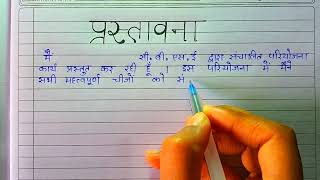 प्रस्तावना
मैं सी.बी.एस.ई द्वारा संचालित परियोजना
कार्य प्रस्तुत कर रही हूँ । इस परियोजना में मैंने
सभी महत्वपूर्ण चीजों को स